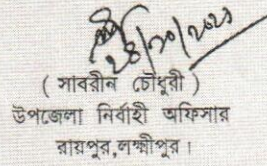 ২৪/১০/২০২১
( সাবরীন চৌধুরী )
উপজেলা নির্বাহী অফিসার
রায়পুর,লক্ষ্মীপুর।